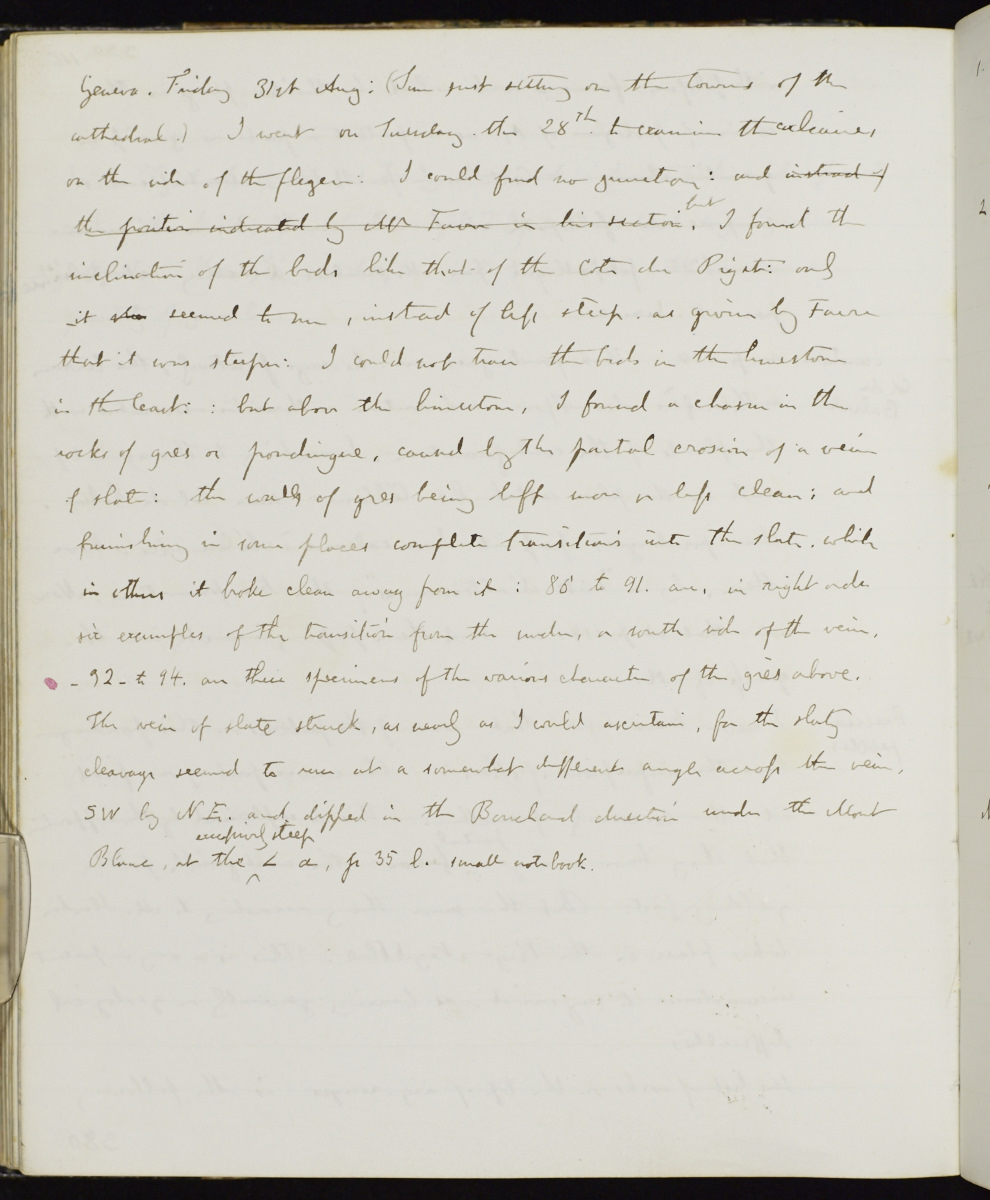 Geneva. Friday 31st Aug: (Sun just setting on the towers of the
cathedral.) I went on Tuesday the 28th. to examine the calcaires
on the side of the flegere: I could find no junction: and instead of
the position indicated by Mr Favre in his section, but I found the
inclination of the beds like that of the Cote du Piget: only
it seemed to me, instead of less steep. as given by Favre
that it was steeper: I could not trace the beds in the limestone
in the least: : but above the limestone, I found a chasm in the
rocks of gres or poudingue, caused by the partial erosion of a vein
of slate: the walls of gres being left more or less clean; and
furnishing in some places complete transitions into the slate. while
in others it broke clean away from it : 86 to 91. are, in right order
six examples of the transition from the under, or south side of the vein,
- 92 - to 94. are three specimens of the various character of the grès above.
The vein of slate struck, as nearly as I could ascertain, for the slaty
cleavage seemed to run at a somewhat different angle across the vein,
SW by N.E. and dipped in the Bouchard direction under the Mont
excessively steep
Blanc, at the ∠ a, p 35 l. small notebook.